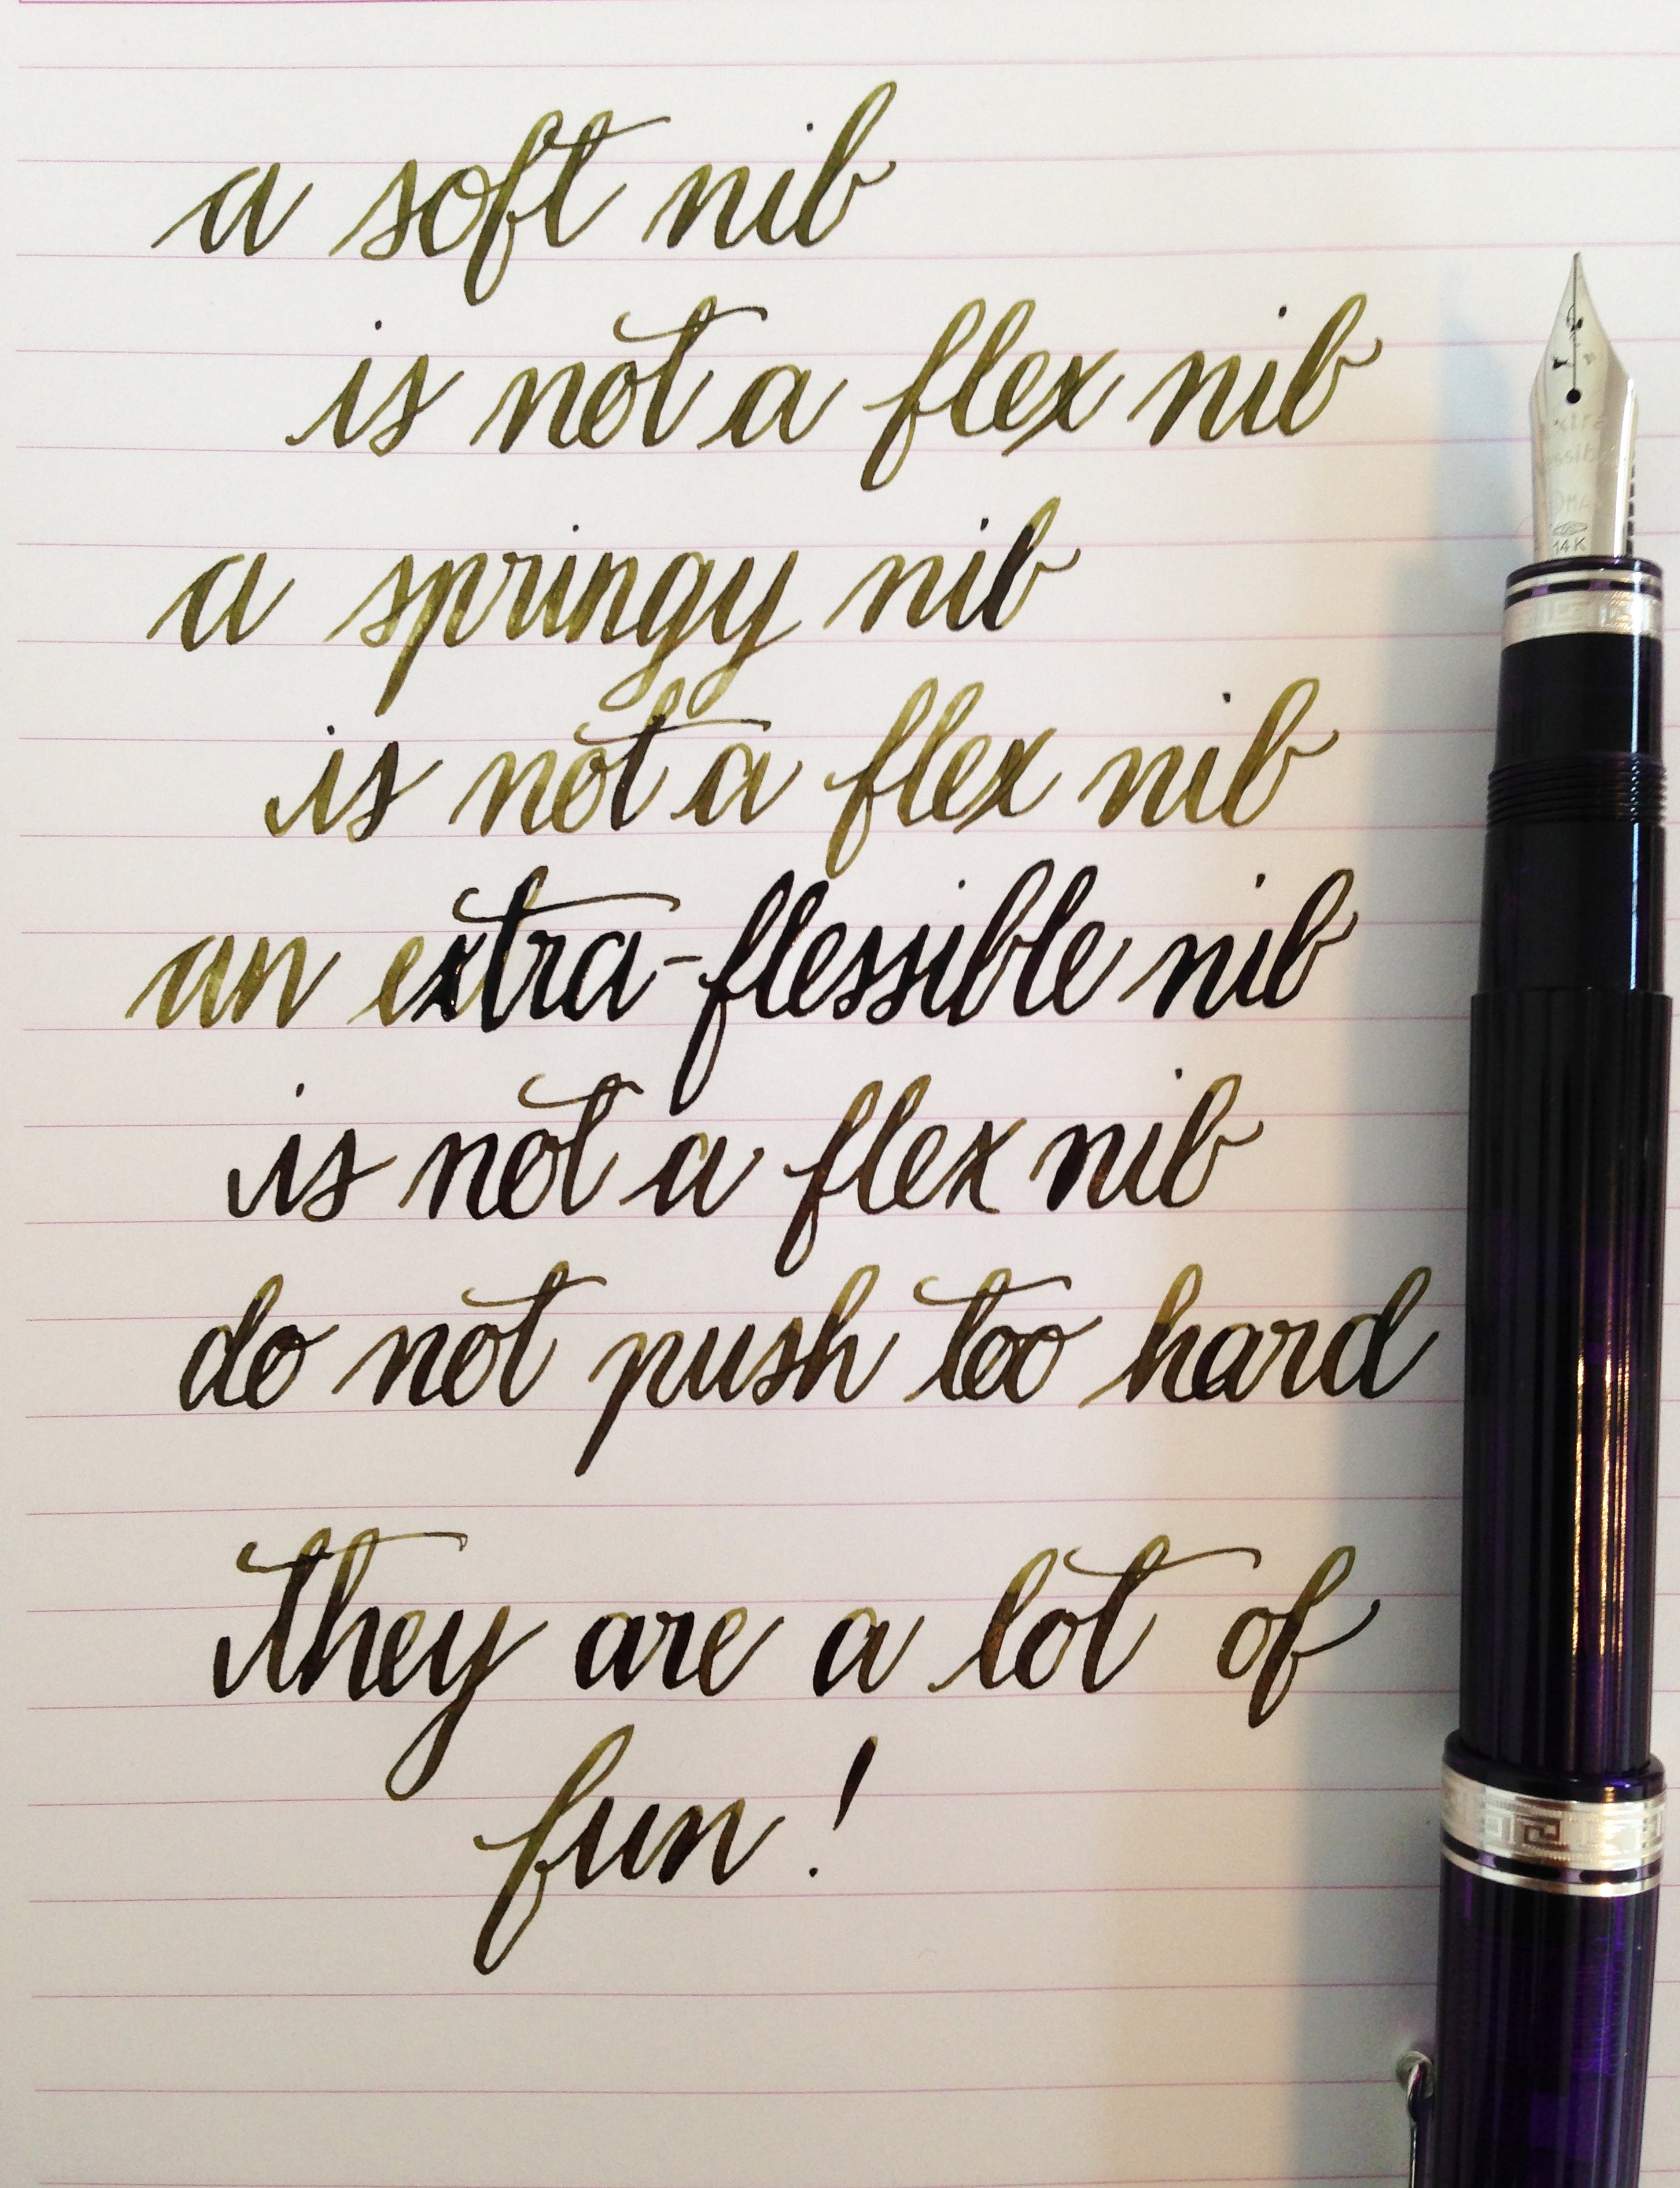 a soft nib
is not a flex nib
a springy nib
is not a flex nib
an extra-flessible nib
is not a flex nib
do not push too hard
they are a lot of
fun!
14K